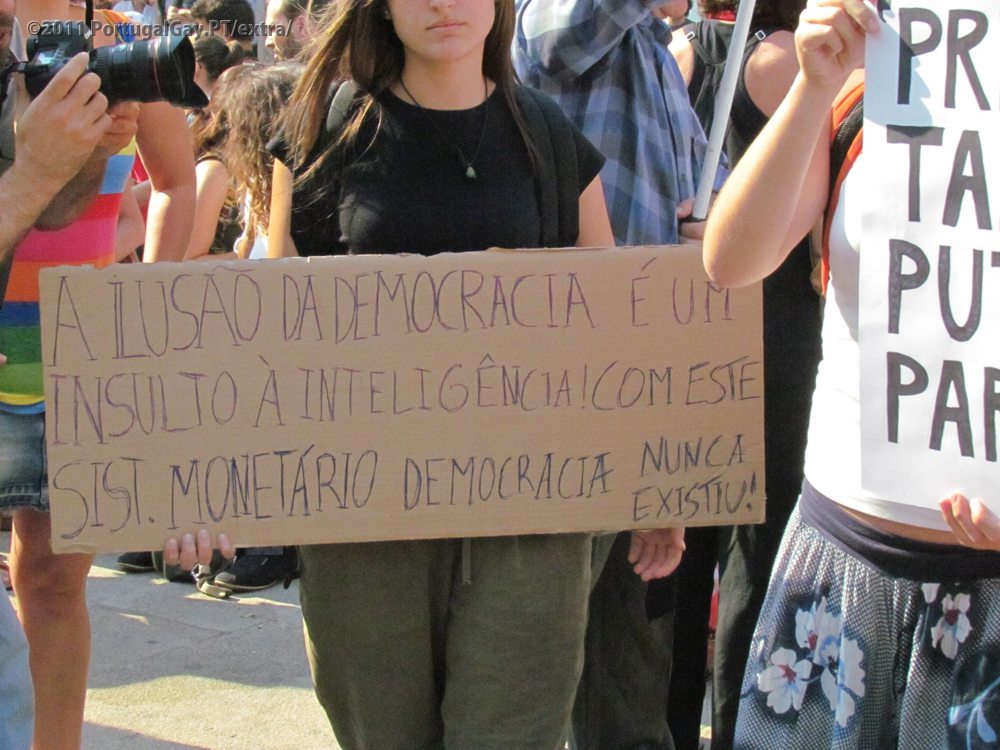 ©2011,PortugalGay.PT/extra/
A ILUSÃO DA DEMOCRACIA É UM
INSULTO À INTELIGÊNCIA! COM ESTE
SIST. MONETÁRIO DEMOCRACIA NUNCA
EXISTIU!
PR
TA
PU
PAR